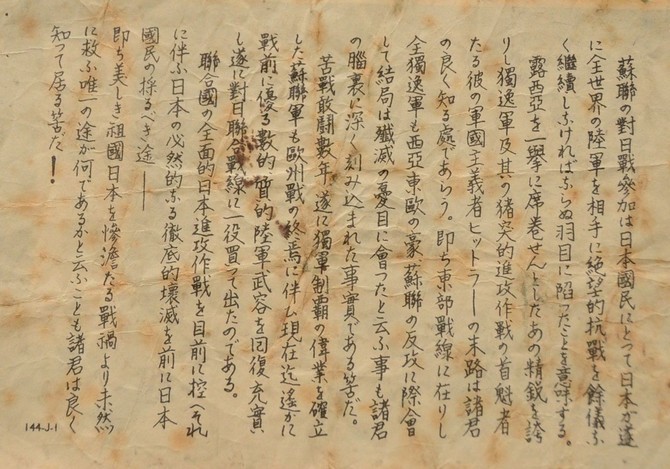 蘇聯の對日戰參加は日本國民にとつて日本が遂
に全世界の陸軍を相手に絶望的抗戰を餘儀ふ
く繼續しふければふらぬ羽目に陷つたことを意味する。
露西亞を一擧に席卷せんとしたあの精鋭を誇
りし獨逸軍及其の猪突的進攻作戰の首魁者
たる彼の軍國主義者ヒットラーの末路は諸君
の良く知る處であらう。即ち東部戰線に在りし
全獨逸軍も西亞東歐の豪、蘇聯の反攻に際會
して結局は殲滅の憂目に會つたと云ふ事も諸君
の腦裏に深く刻み込まれた事實である筈だ。
苦戰敢鬪數年、遂に獨軍制覇の偉業を確立
した蘇聯軍も歐州戰の終焉に伴ふ現在迄遙かに
戰前に優る數的、質的陸軍武容を回復充實
し遂に對日聯合戰線に一役買つて出たのである。
聯合國の全面的日本進攻作戰を目前に控へそれ
に伴ふ日本の必然的なる徹底的壞滅を前に日本
國民の採るべき途――
即ち美しき祖國日本を慘澹たる戰禍より未然
に救ふ唯一の途が何であるかと云ふことも諸君は良く
知つて居る筈だ!
144-J-1